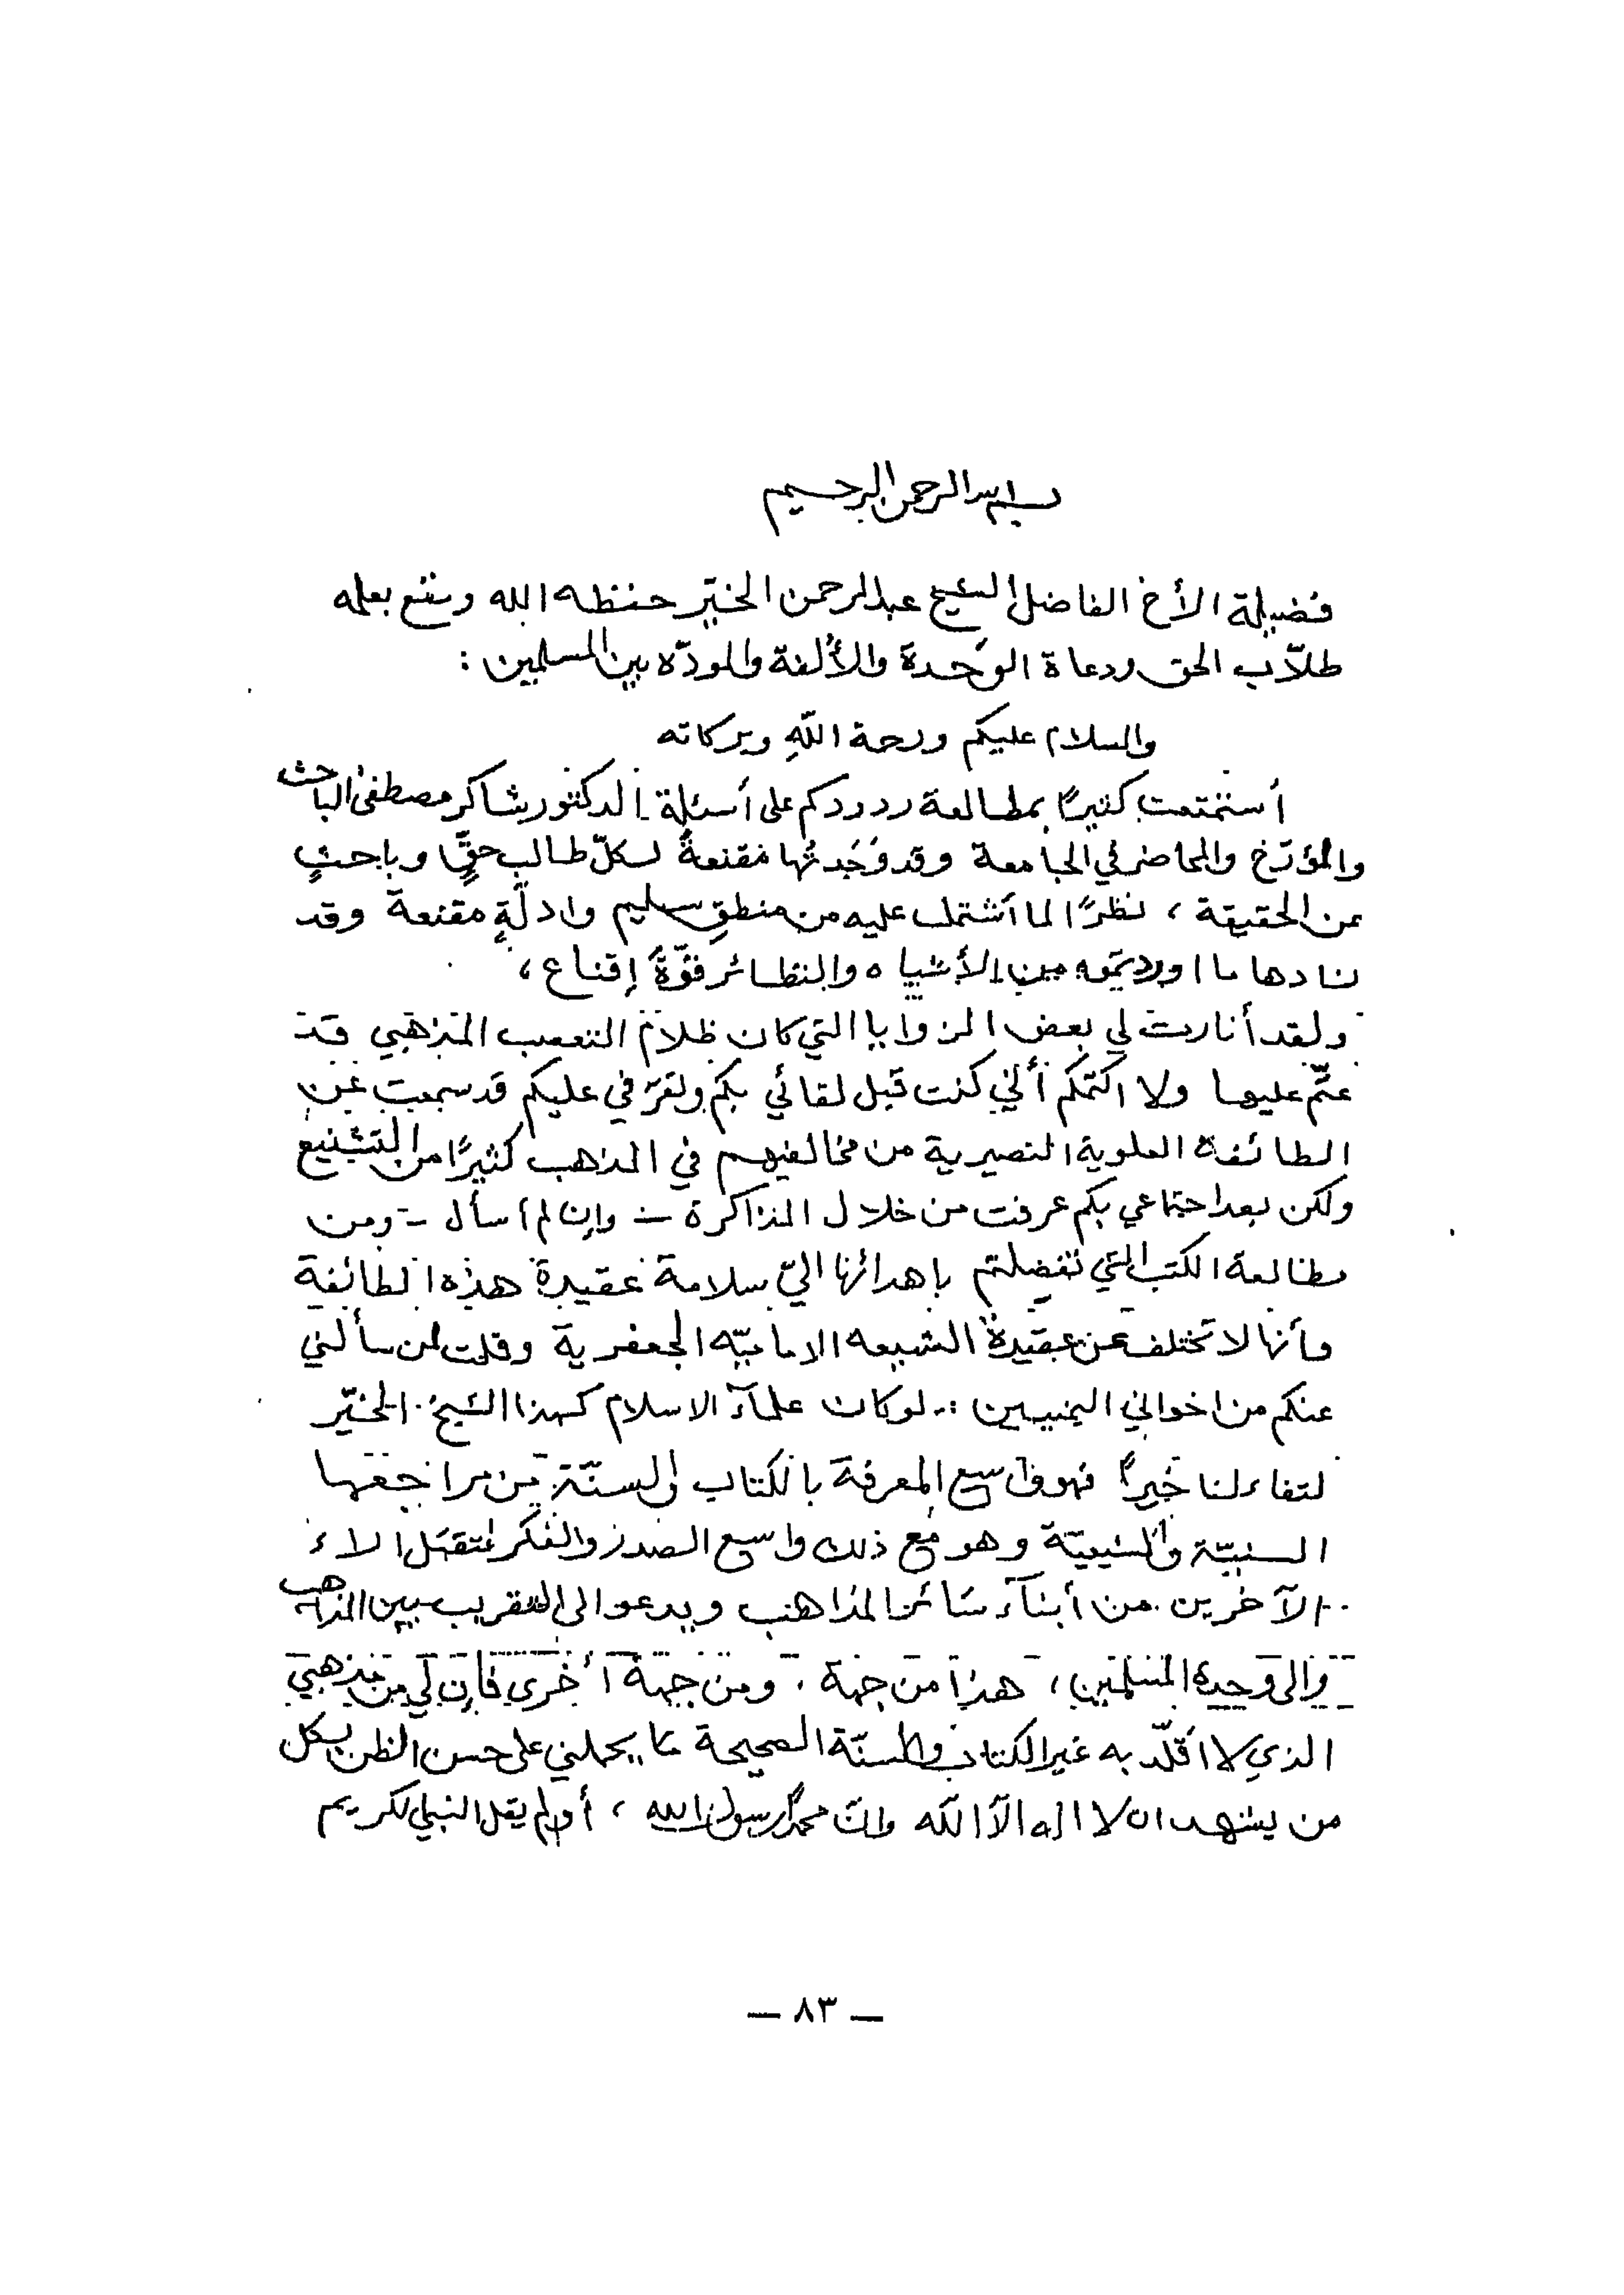 بسم الله الرحمن الرحيم
فضيلة الأخ الفاضل الشيخ عبد الرحمن الخيّر حفظه الله ونفع بعلمه
طلّاب الحق ودعاة الوَحدة والأُلفة والمودّه بين المسلمين :
والسلام عليكم ورحمة اللهِ وبركاته
أستمتعت كثيرًا بمطالعة ردودكم على أسئلة الدكتور شاكر مصطفى الباحث
والمؤرّخ والمحاضر في الجامعة وقد وَجَدتُها مُقنعةً لكلّ طالب حقٍّ وباحثٍ
عن الحقيقة ، نظرًا لما أشتملت عليه من منطقٍ سليم وادلّةٍ مقنعة وقد
زادها ما اوردتموه من الأشباه والنظائر قوّةَ إقناع ،
ولقد أنارت لي بعض الزوايا التي كان ظلام التعصب المذهبي قد
عتّم عليها ولا اكتمكم أنّي كنت قبل لقائي بكم وتعرّفي عليكم قد سمعت عن
الطائفة العلوية النصيرية من مخالفيهم في المذهب كثيرًا من التشنيع
ولكن بعد اجتماعي بكم عرفت من خلال المذاكرة - وإن لم أسأل - ومن
مطالعة الكتب التي تفضلتم بإهدائها اليّ سلامة عقيدة هذه الطائفة
وأنها لا تختلف عن عقيدة الشيعه الاماميّه الجعفرية وقلت لمن سألني
عنكم من اخواني اليمنيين :- لو كان علمآء الاسلام كهذا الشيخ الخيّر
لتفاءلنا خيراً فهو واسع المعرفة بالكتاب والسنّة من مراجعها
السنيّة والشيعيّة وهو مع ذلك واسع الصدر والفكر لتقبّل الاء
الآخرين من أبنآء سائر المذاهب ويدعو الى التقريب بين المذاهب
والى وحدة المسلمين ، هذا من جهة ، ومن جهة أخرى فإن لي من مذهبي
الذي لا أقلّد به غير الكتاب والسنّة الصحيحة ما يحملني على حسن الظن بكل
من يشهد ان لا اله الّا الله وانّ محمدًا رسول الله ، أو لم يقل النبي الكريم
— ٨٣ —